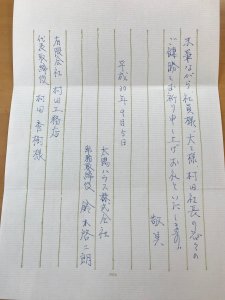 末筆ながら社員様、大工様、村田社長の益々の
ご健勝をお祈り申し上げお礼といたします。
敬具
平成30年9月5日
太陽ハウス株式会社
常務取締役 鈴木啓二朗
有限会社 村田工務店
代表取締役 村田 香樹様